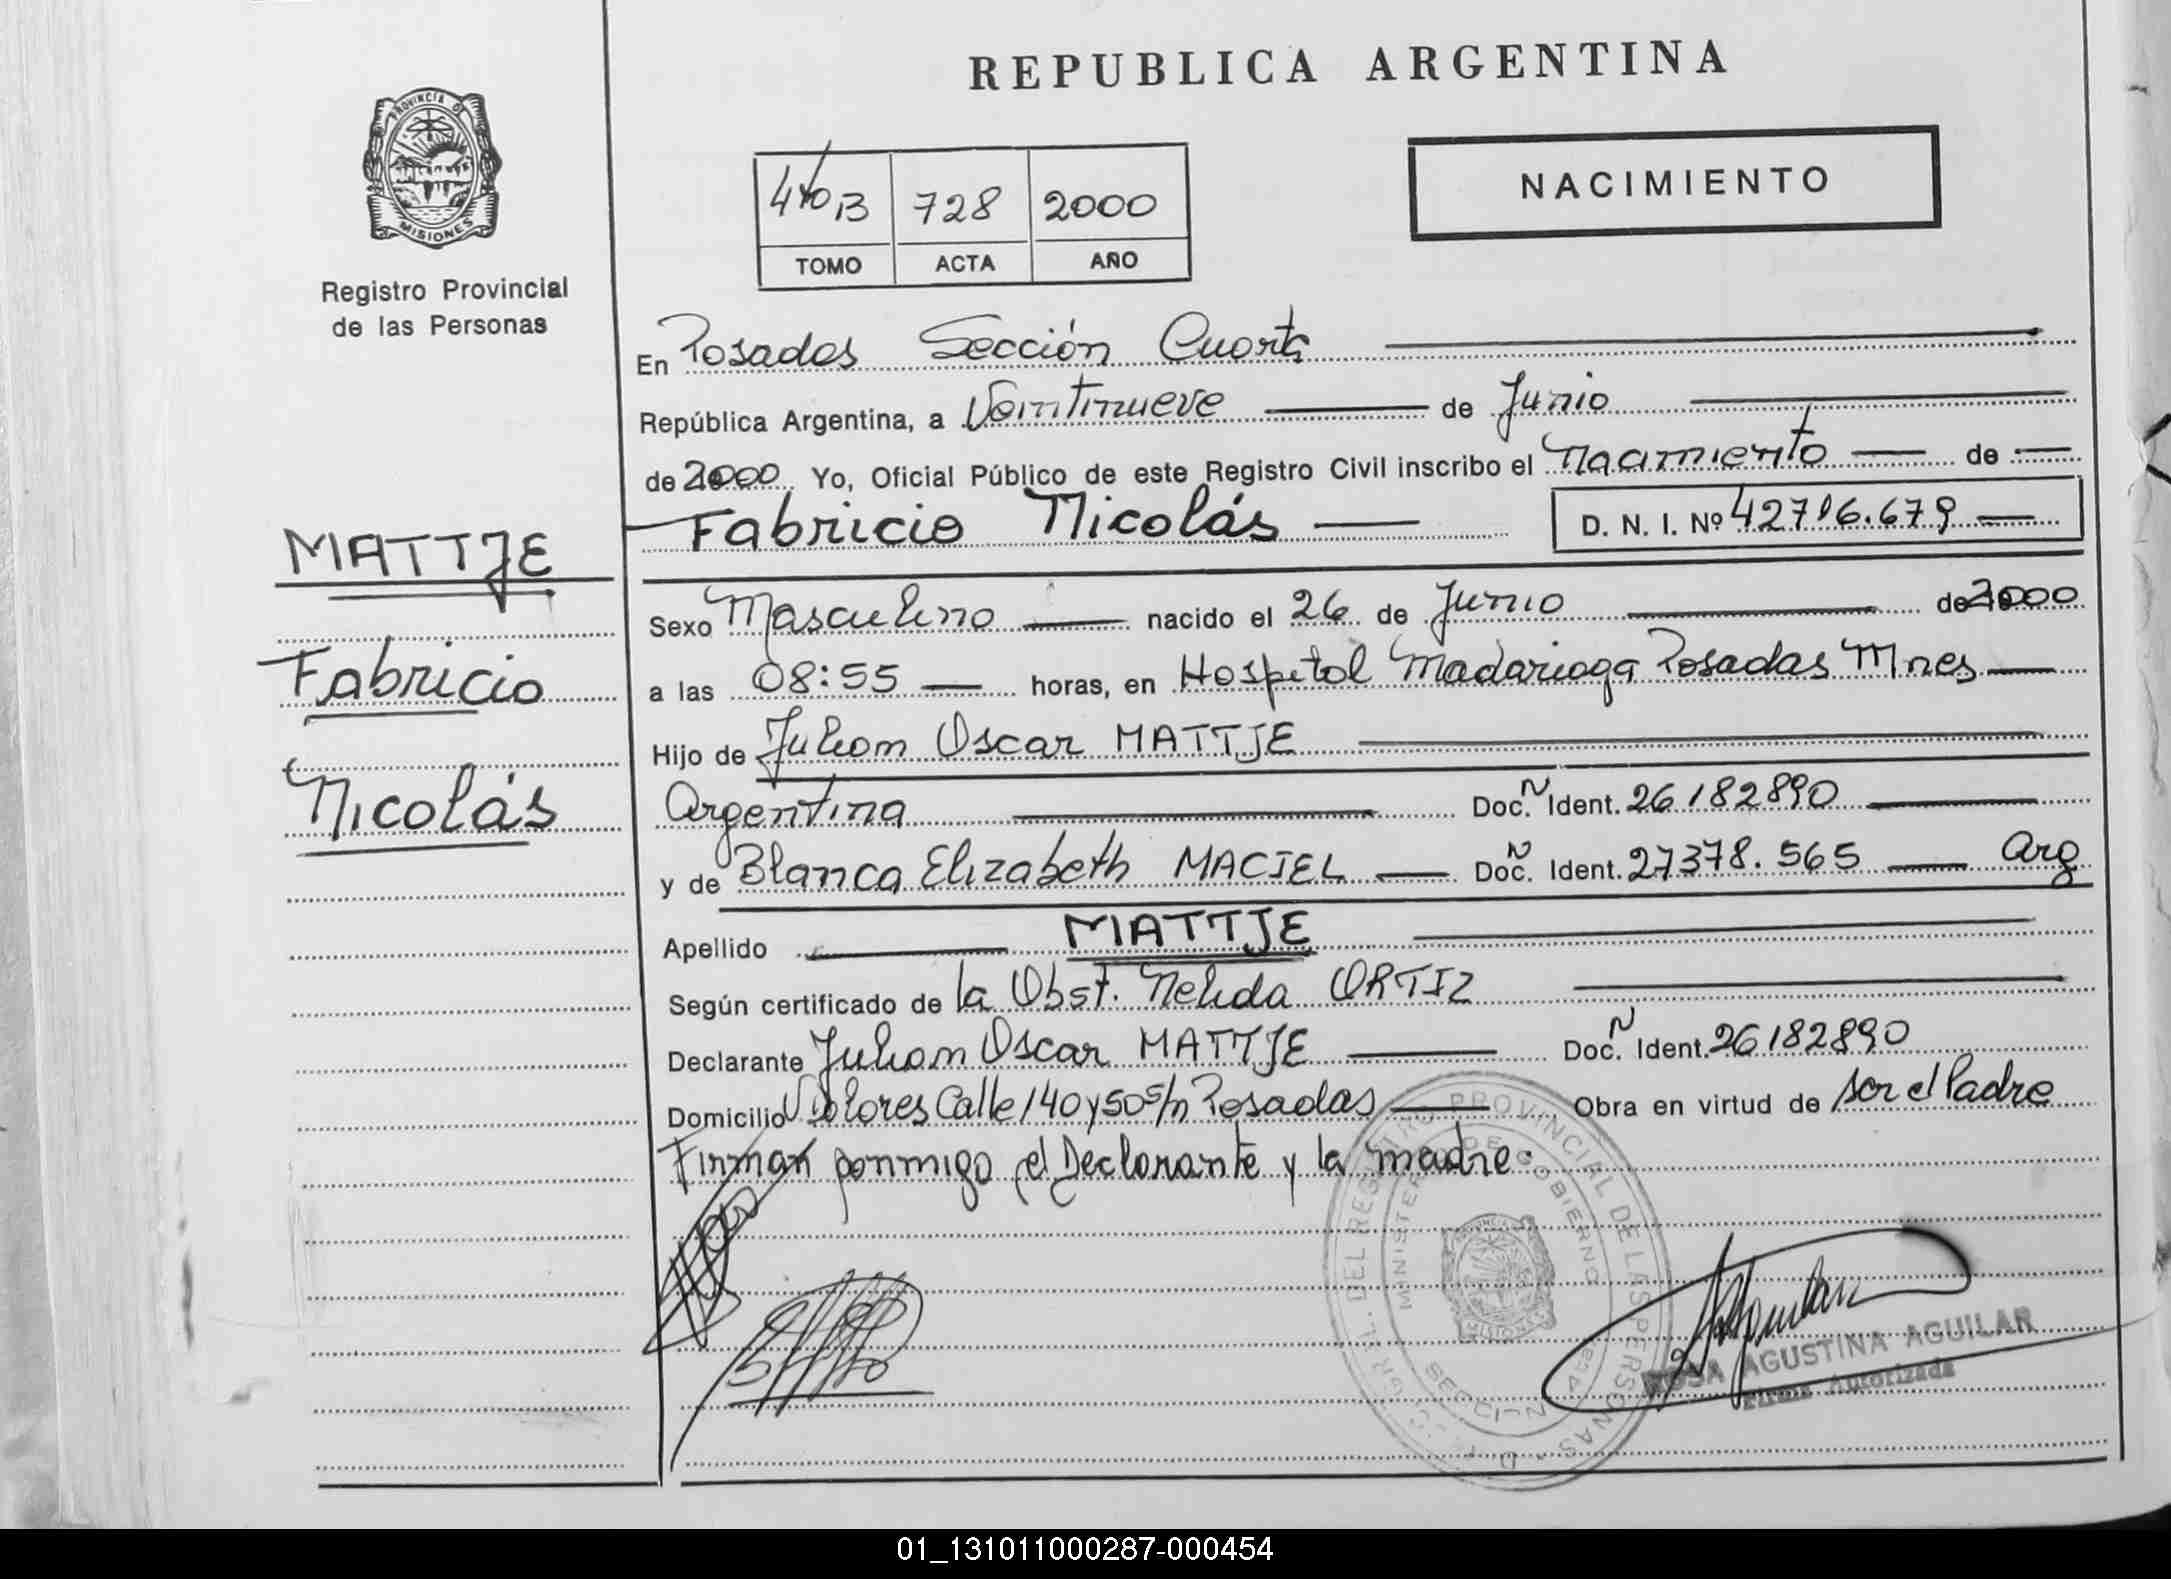 REPUBLICA ARGENTINA
PROVINCIA DE
MISIONES
Registro Provincial
de las Personas
4to B 728 2000
TOMO ACTA AÑO
NACIMIENTO
En Posadas Sección Cuarta
República Argentina, a Veintinueve de Junio
de 2000 Yo, Oficial Público de este Registro Civil inscribo el Nacimiento de
Fabricio Nicolás D. N. I. Nº 42716.679
MATTJE
Fabricio
Nicolás
Sexo Masculino nacido el 26 de Junio de 2000
a las 08:55 horas, en Hospital Madariaga Posadas Mnes
Hijo de Julian Oscar MATTJE
Argentina Doc. N Ident. 26182890
y de Blanca Elizabeth MACIEL Doc. N Ident. 27378.565 Arg
Apellido MATTJE
Según certificado de la Obst. Nelida ORTIZ
Declarante Julian Oscar MATTJE Doc. N Ident. 26182890
Domicilio Dolores Calle 140 y 50 s/n Posadas Obra en virtud de ser el Padre
Firman conmigo el Declarante y la madre.
DEL REGISTRO PROVINCIAL DE LAS PERSONAS
MINISTERIO DE GOBIERNO
MISIONES
SECCION 4ta
ROSA AGUSTINA AGUILAR
Firma Autorizada
01_131011000287-000454